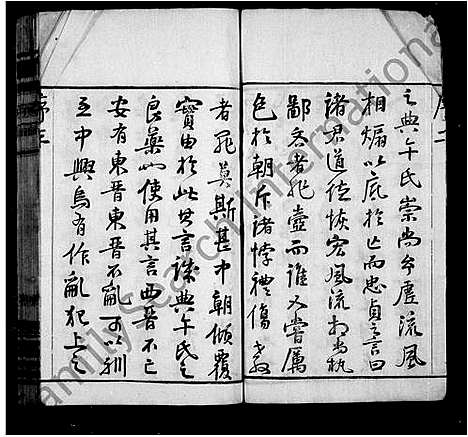 序二
之典午氏崇尚多虛流風
相煽以底於亡而忠貞之言曰
諸君道德恢宏風流相尚執
鄙吝者非壼而誰又嘗厲
色於朝斥諸悖禮傷教
者非莫斯甚中朝傾覆
實由於此其言誠典午氏之
良藥也使用其言西晉不亡
安有東晉東晉不亂可以馴
至中興烏有作亂犯上之
序三
FamilySearch International